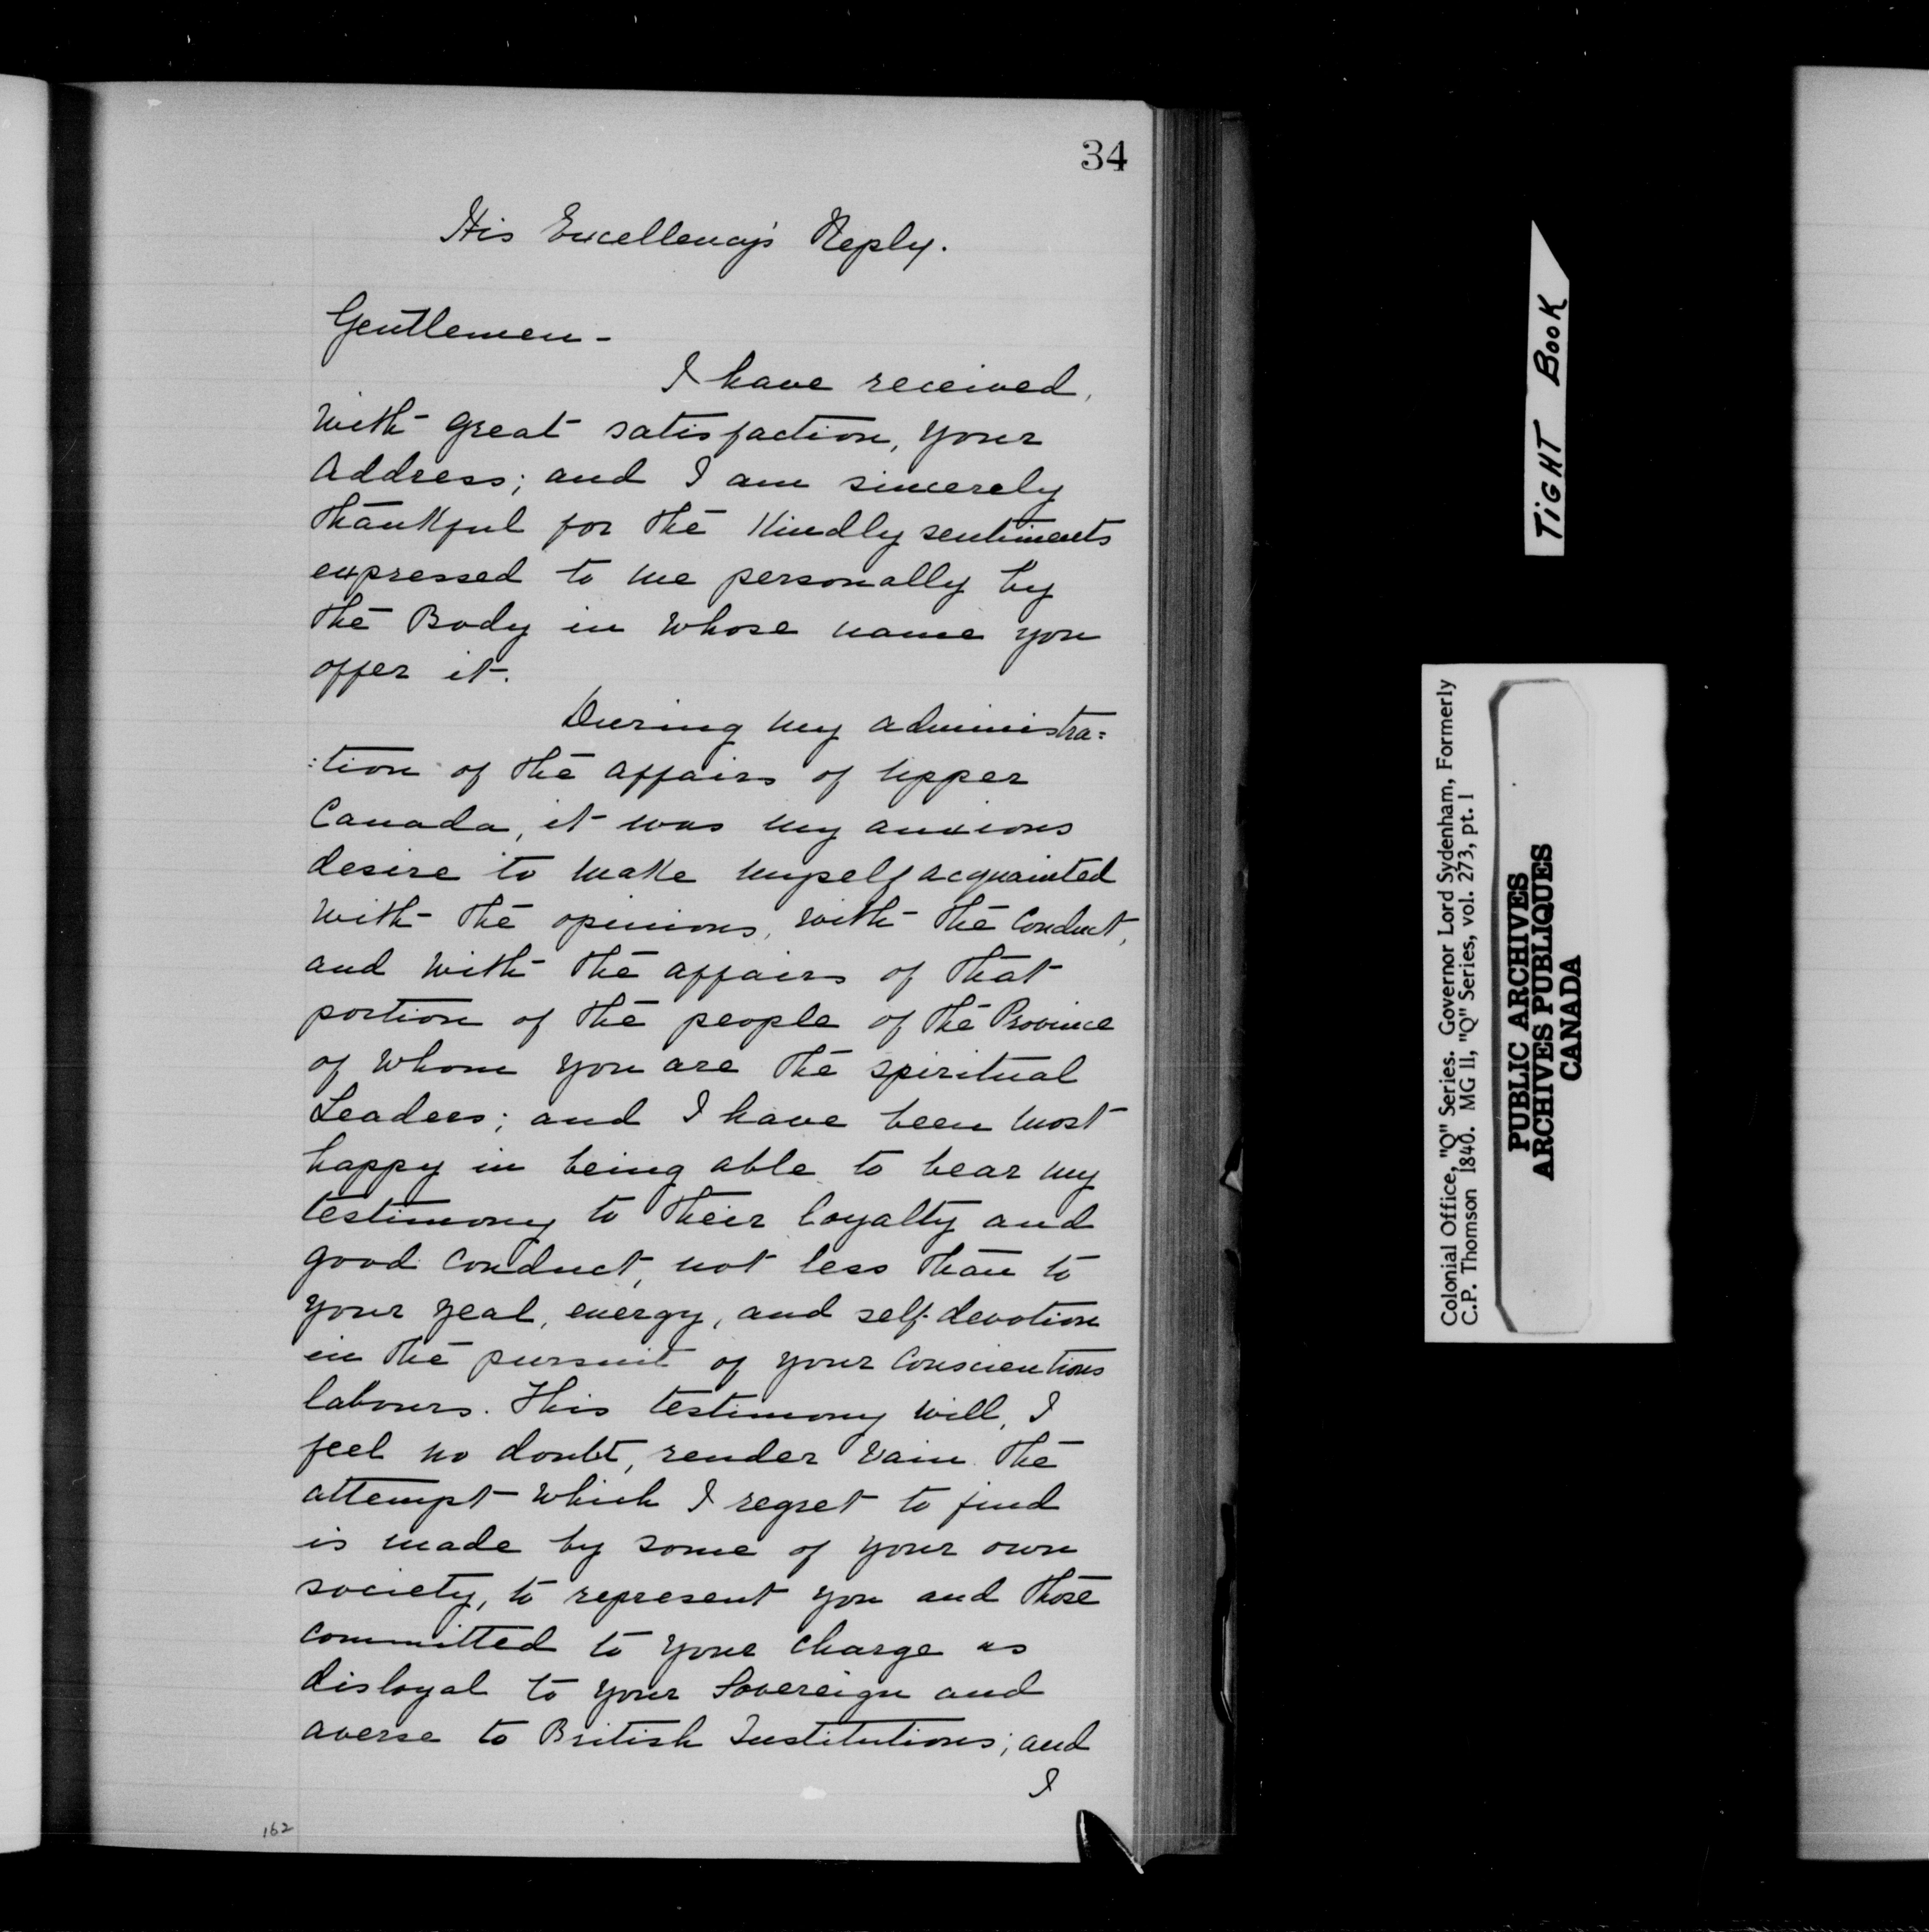 34
His Excellency's Reply.
Gentlemen -
I have received,
with great satisfaction, your
Address; and I am sincerely
thankful for the kindly sentiments
expressed to me personally by
the Body in whose name you
offer it.
During my administra=
:tion of the affairs of Upper
Canada, it was my anxious
desire to make myself acquainted
with the opinions, with the conduct,
and with the affairs of that
portion of the people of the Province
of whom you are the spiritual
Leaders; and I have been most
happy in being able to bear my
testimony to their loyalty and
good conduct, not less than to
your zeal, energy, and self-devotion
in the pursuit of your conscientious
labours. This testimony will, I
feel no doubt, render vain the
attempt which I regret to find
is made by some of your own
society, to represent you and those
committed to your charge as
disloyal to your Sovereign and
averse to British Institutions; and
I
162
TIGHT BOOK
Colonial Office, "Q" Series. Governor Lord Sydenham, Formerly
C.P. Thomson 1840. MG 11, "Q" Series, vol. 273, pt. 1
PUBLIC ARCHIVES
ARCHIVES PUBLIQUES
CANADA